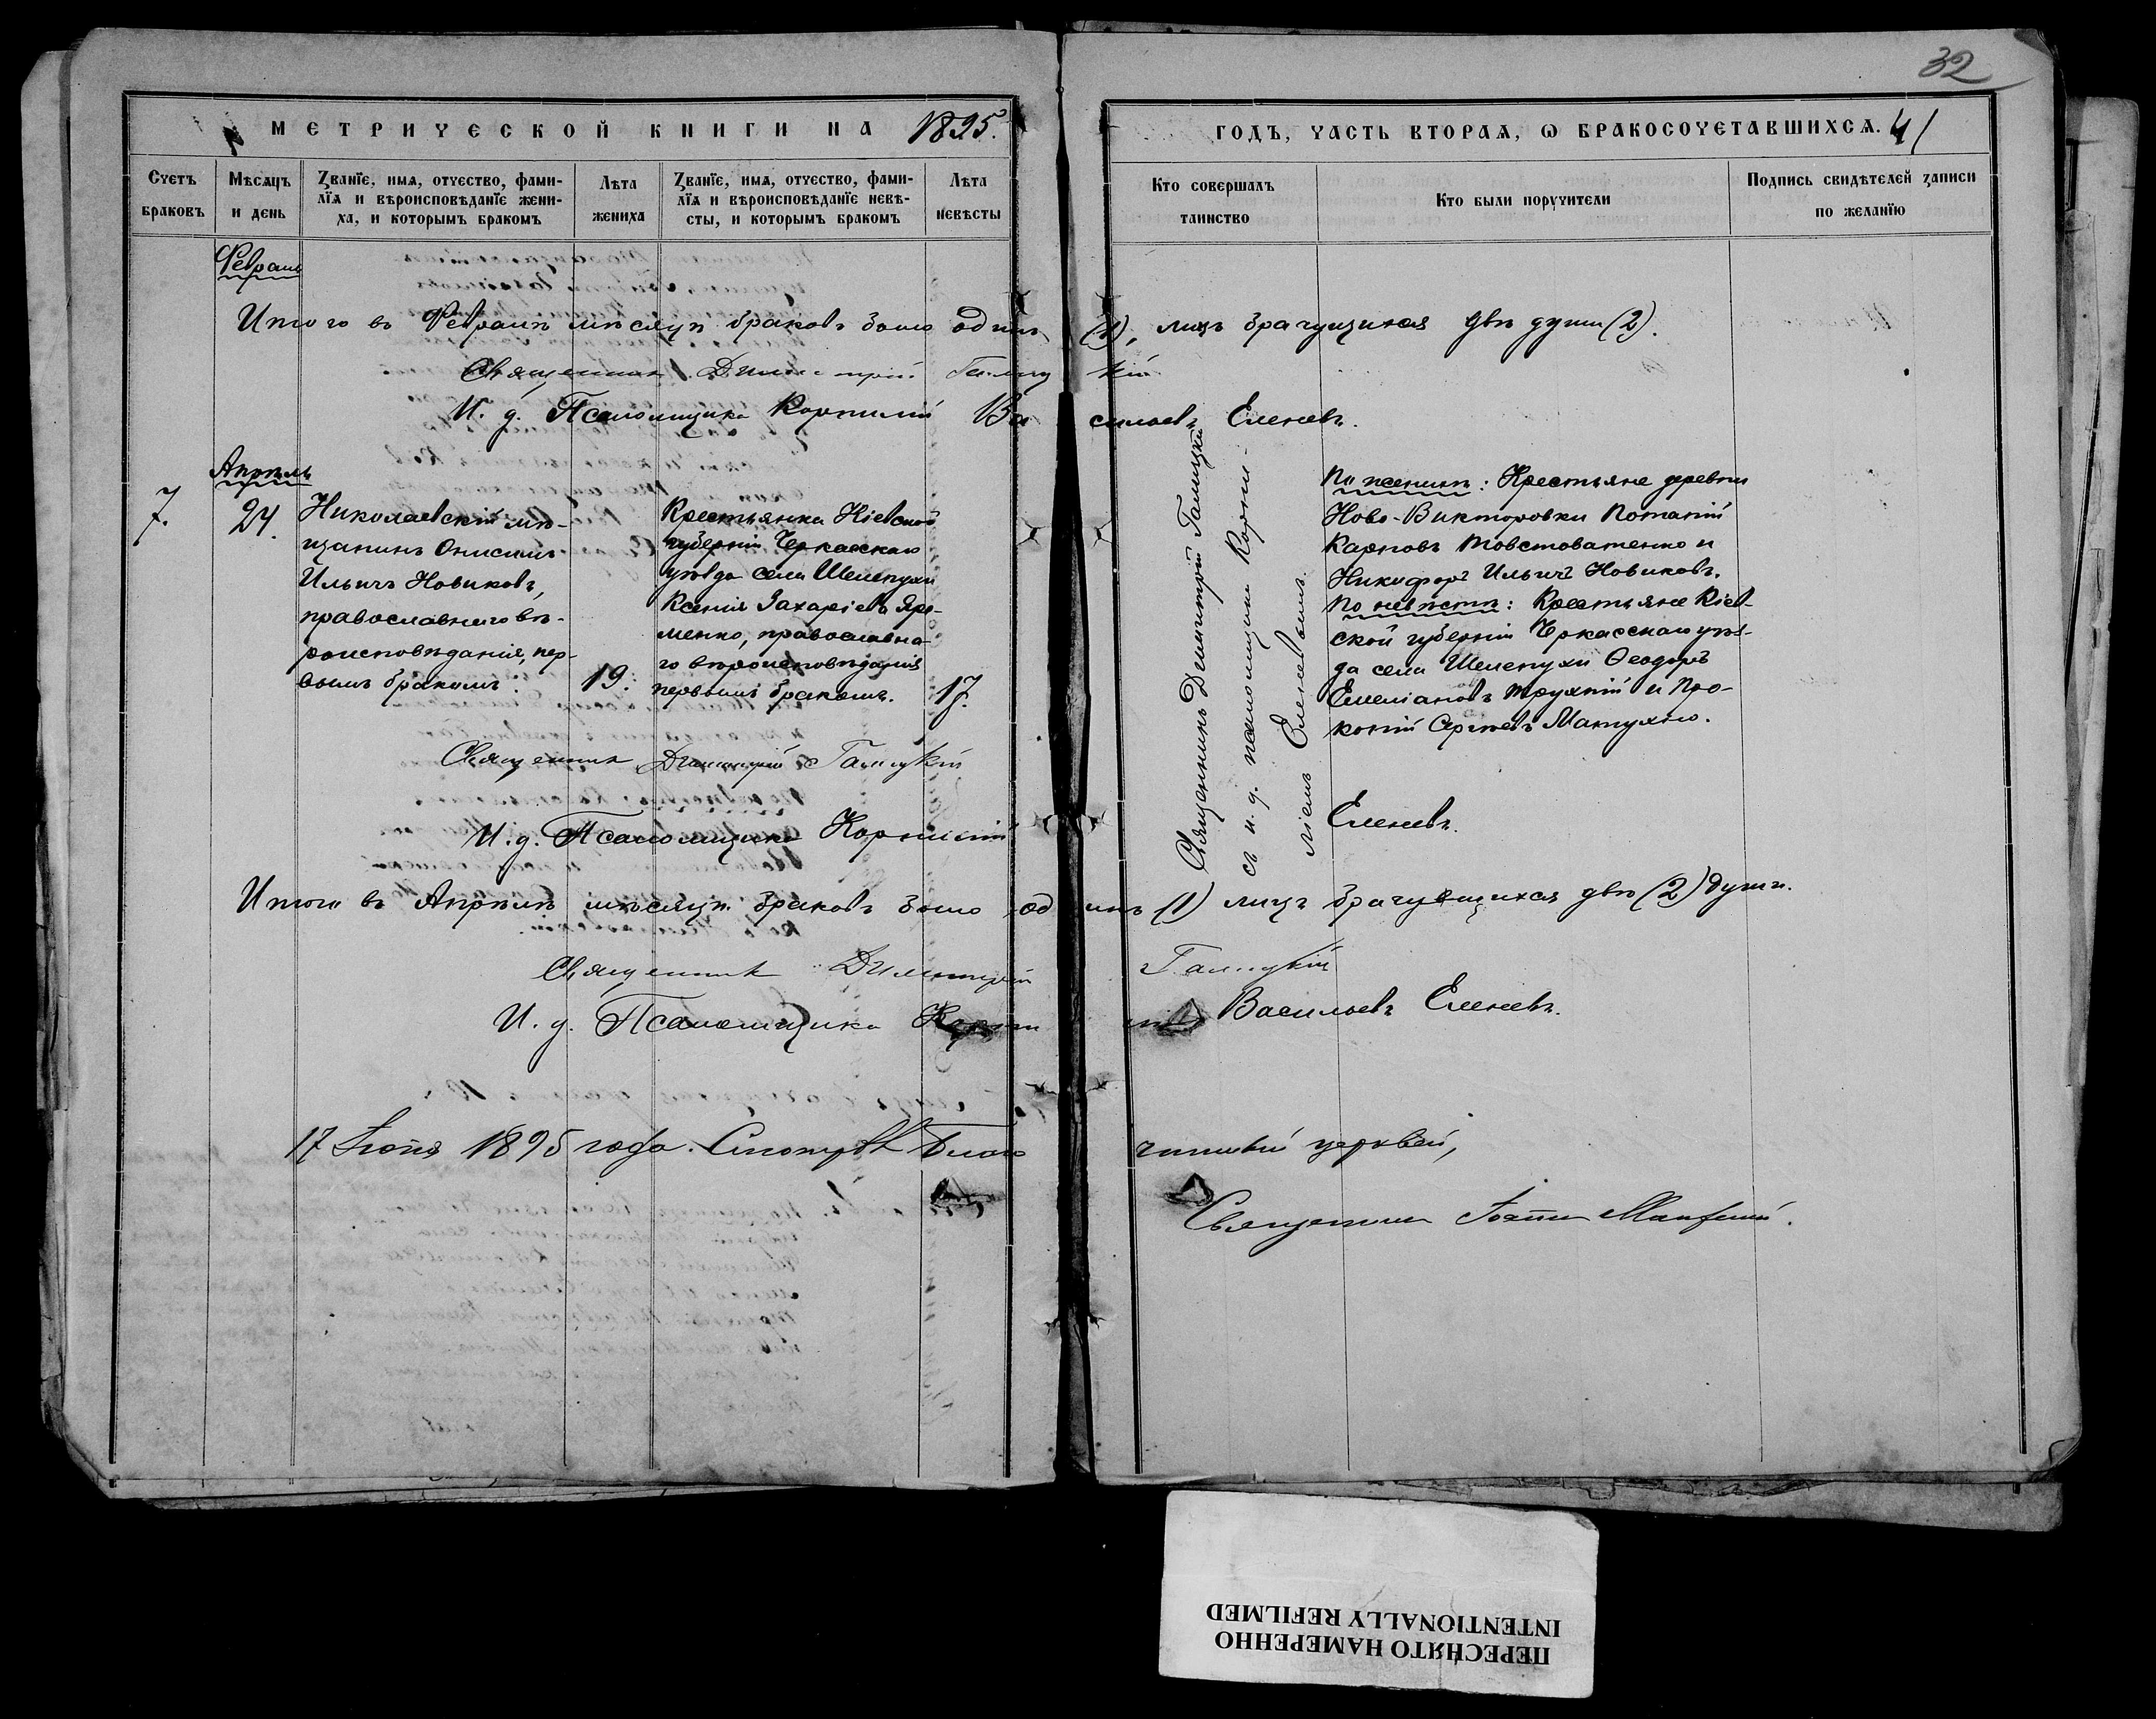 32
МЕТРИЧЕСКОЙ КНИГИ НА 1895.
ГОДЪ, ЧАСТЬ ВТОРАЯ, Ѡ БРАКОСОЧЕТАВШИХСЯ. 41
Счетъ браковъ
Мѣсяцъ и день
Званїе, имя, отчество, фами-
лїя и вѣроисповѣданїе жени-
ха, и которымъ бракомъ
Лѣта жениха
Званїе, имя, отчество, фами-
лїя и вѣроисповѣданїе невѣ-
сты, и которымъ бракомъ
Лѣта невѣсты
Кто совершалъ таинство
Кто были поручители
Подпись свидѣтелей записи по желанїю
Февраль
Итого въ Февралѣ мѣсяцѣ браковъ было одинъ (1), лицъ брачущихся двѣ души (2).
Священникъ Димитрій Галицкій
И. д. Псаломщика Корнилій Васильевъ Еленевъ.
Апрѣль
7.
24.
Николаевскій мѣ-
щанинъ Онисимъ
Ильичъ Новиковъ,
православнаго вѣ-
роисповѣданія, пер-
вымъ бракомъ.
19.
Крестьянка Кіевской
губерніи Черкасскаго
уѣзда села Шелепухи
Ксенія Захаріева Яре-
менко, православна-
го вѣроисповѣданія
первымъ бракомъ.
17.
Священникъ Димитрій Галицкій
съ и. д. псаломщика Корни-
ліемъ Еленевымъ.
По женихѣ: Крестьяне деревни
Ново-Викторовки Потапій
Карповъ Товстоватенко и
Никифоръ Ильичъ Новиковъ.
По невѣстѣ: Крестьяне Кіев-
ской губерніи Черкасскаго уѣз-
да села Шелепухи Ѳеодоръ
Емеліановъ Трухній и Про-
копій Сергѣевъ Матухно.
Священникъ Димитрій Галицкій
И. д. Псаломщика Корнилій Еленевъ.
Итого въ Апрѣлѣ мѣсяцѣ браковъ было одинъ (1) лицъ брачущихся двѣ (2) души.
Священникъ Димитрій Галицкій
И. д. Псаломщика Васильевъ Еленевъ.
17 Іюня 1895 года. Смотрѣлъ Благочинный церквей,
Священникъ Іоаннъ
ПЕРЕСНЯТО НАМЕРЕННО
INTENTIONALLY REFILMED